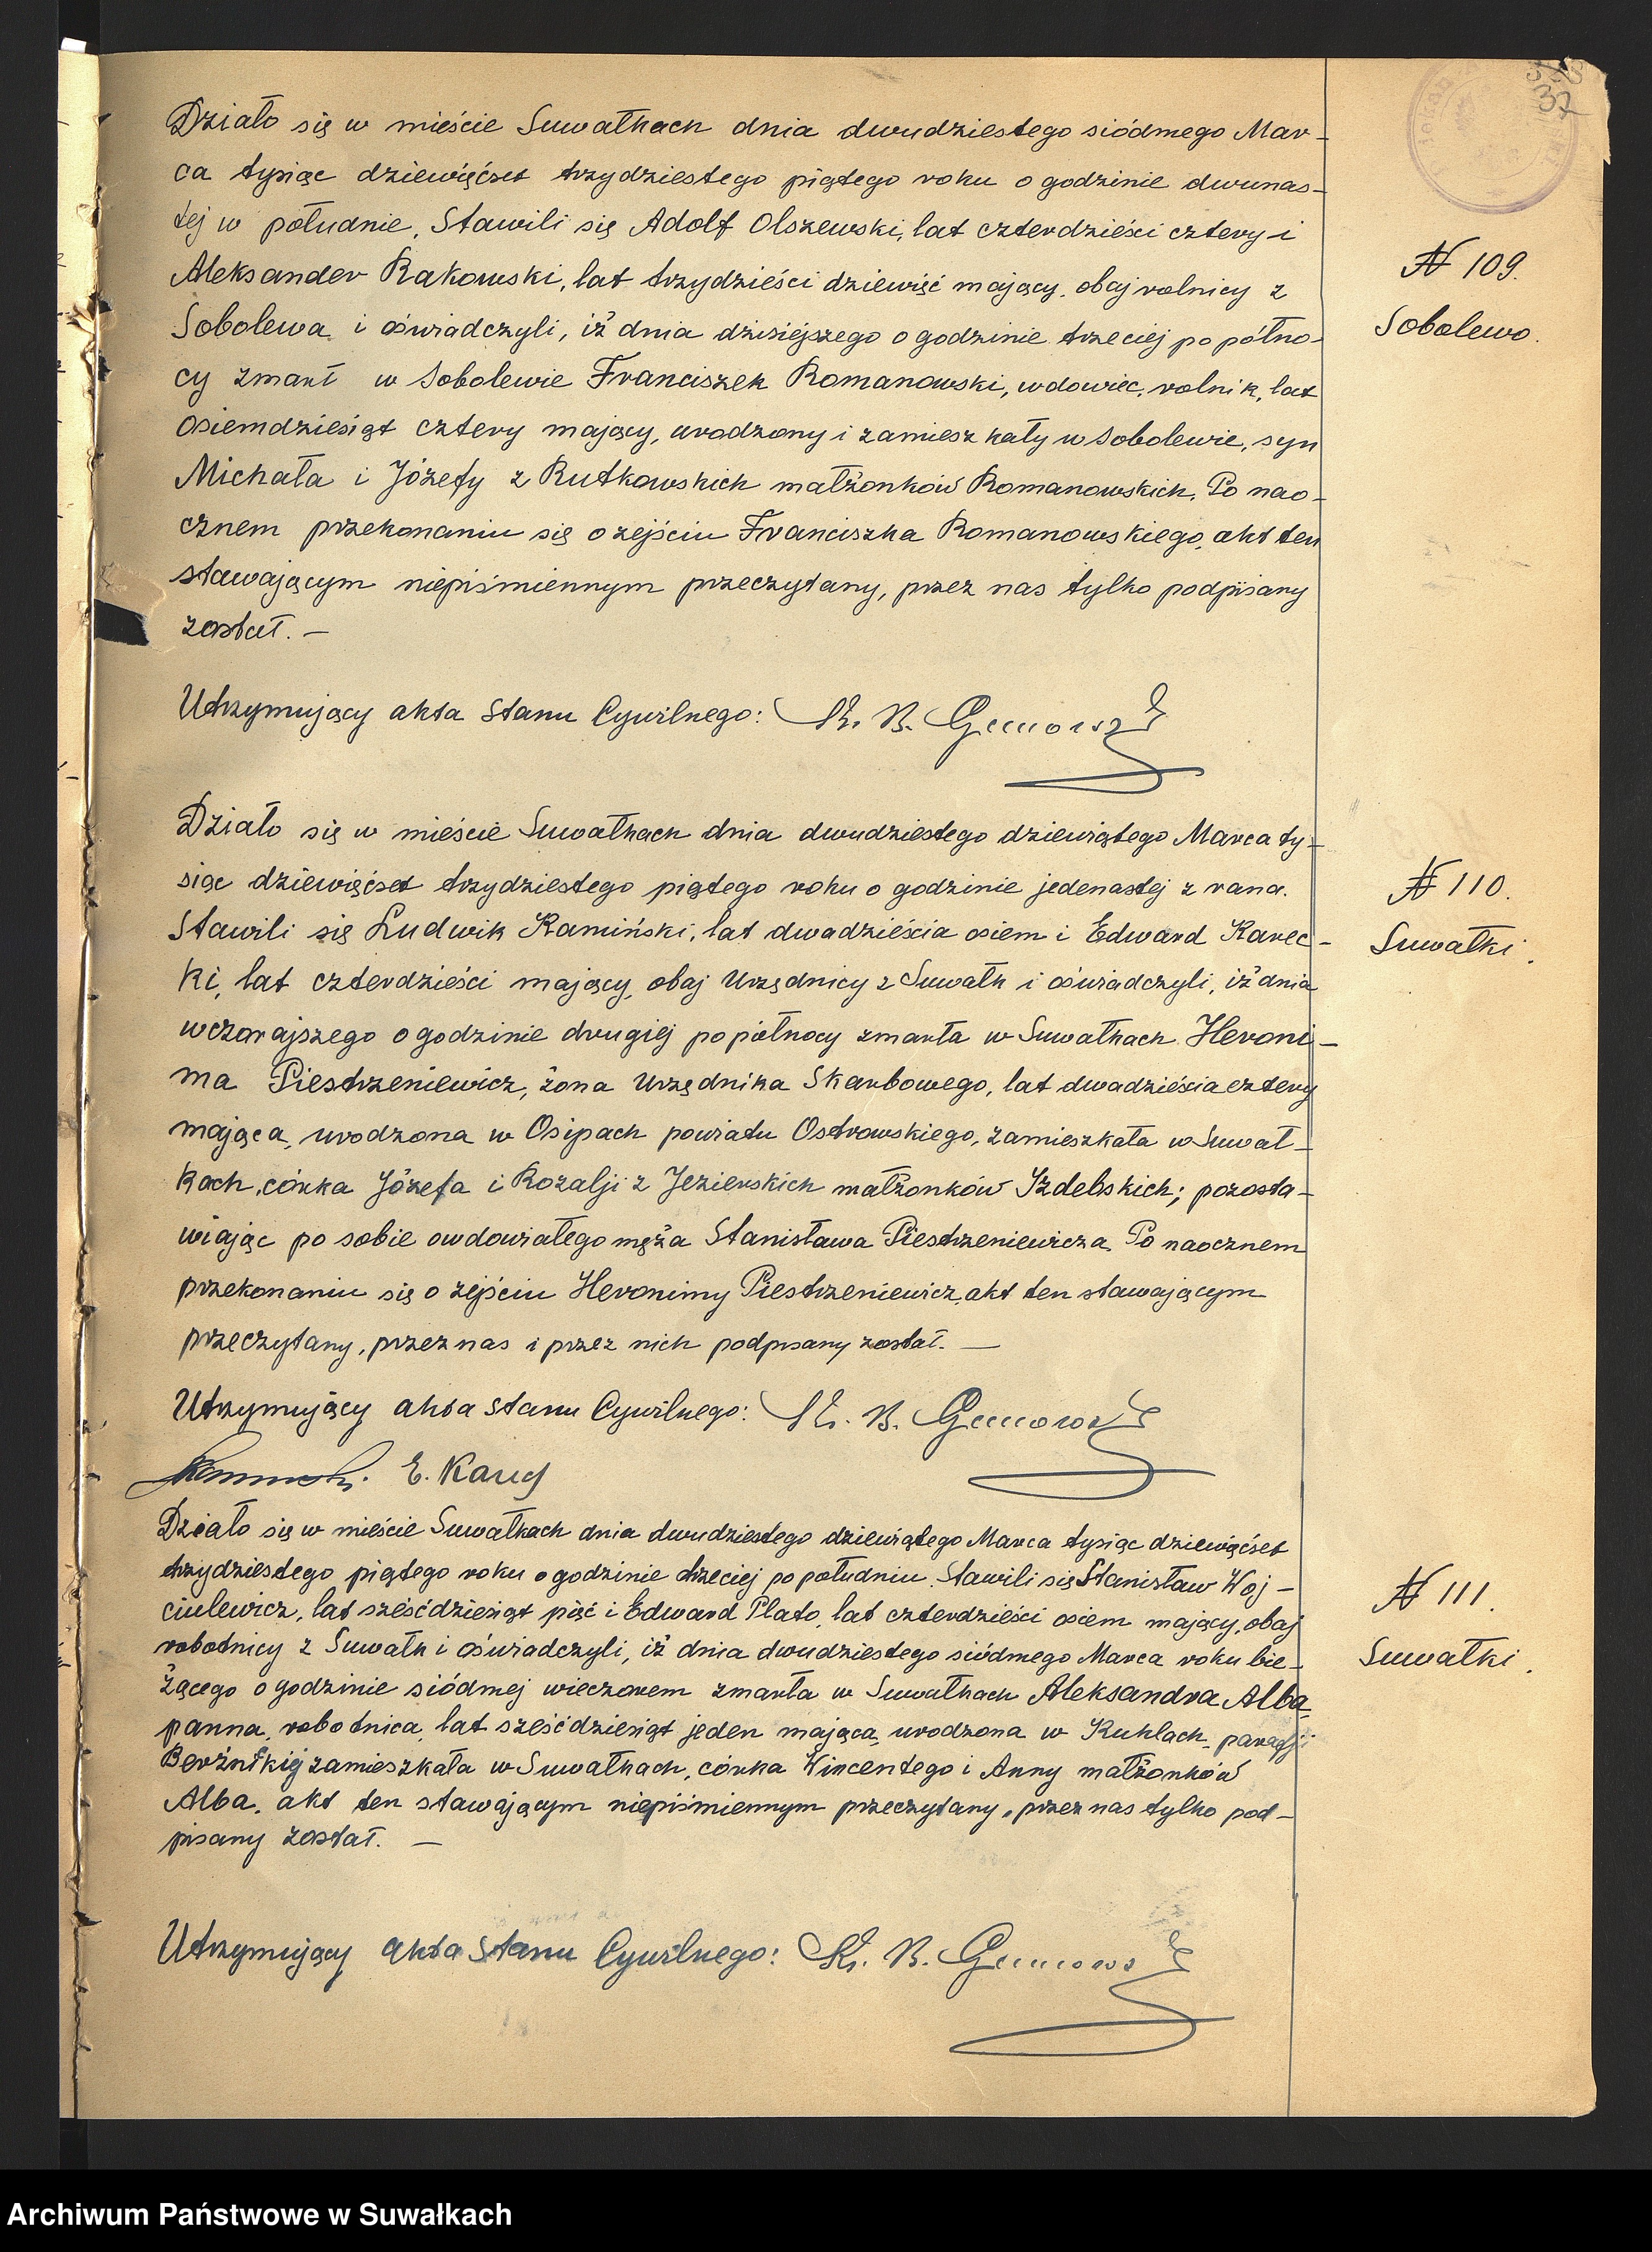 37
Działo się w mieście Suwałkach dnia dwudziestego siódmego Mar-
ca tysiąc dziewięćset trzydziestego piątego roku o godzinie dwunas-
tej w południe. Stawili się Adolf Olszewski, lat czterdzieści cztery i
Aleksander Rakowski, lat trzydzieści dziewięć mający, obaj rolnicy z
Sobolewa i oświadczyli, iż dnia dzisiejszego o godzinie trzeciej po półno-
cy zmarł w Sobolewie Franciszek Romanowski, wdowiec, rolnik, lat
osiemdziesiąt cztery mający, urodzony i zamieszkały w Sobolewie, syn
Michała i Józefy z Rutkowskich małżonków Romanowskich. Po nao-
cznem przekonaniu się o zejściu Franciszka Romanowskiego, akt ten
stawającym niepiśmiennym przeczytany, przez nas tylko podpisany
został. —
Utrzymujący akta Stanu Cywilnego:
N 109.
Sobolewo.
Działo się w mieście Suwałkach dnia dwudziestego dziewiątego Marca ty-
siąc dziewięćset trzydziestego piątego roku o godzinie jedenastej z rana.
Stawili się Ludwik Kamiński, lat dwadzieścia osiem i Edward Karec-
ki, lat czterdzieści mający, obaj Urzędnicy z Suwałk i oświadczyli, iż dnia
wczorajszego o godzinie drugiej po północy zmarła w Suwałkach Heroni-
ma Piestrzeniewicz, żona Urzędnika Skarbowego, lat dwadzieścia cztery
mająca, urodzona w Osipach powiatu Ostrowskiego, zamieszkała w Suwał-
kach, córka Józefa i Rozalji z Jezierskich małżonków Izdebskich; pozosta-
wiając po sobie owdowiałego męża Stanisława Piestrzeniewicza. Po naocznem
przekonaniu się o zejściu Heronimy Piestrzeniewicz, akt ten stawającym
przeczytany, przez nas i przez nich podpisany został. —
Utrzymujący akta Stanu Cywilnego:
E.
N 110.
Suwałki.
Działo się w mieście Suwałkach dnia dwudziestego dziewiątego Marca tysiąc dziewięćset
trzydziestego piątego roku o godzinie trzeciej po południu. Stawili się Stanisław Woj-
ciulewicz, lat sześćdziesiąt pięć i Edward Plato, lat czterdzieści osiem mający, obaj
robotnicy z Suwałk i oświadczyli, iż dnia dwudziestego siódmego Marca roku bie-
żącego o godzinie siódmej wieczorem zmarła w Suwałkach Aleksandra Alba,
panna, robotnica, lat sześćdziesiąt jeden mająca, urodzona w Kuklach, parafji
Berżnikiej zamieszkała w Suwałkach, córka Wincentego i Anny małżonków
Alba. akt ten stawającym niepiśmiennym przeczytany, przez nas tylko pod-
pisany został. —
Utrzymujący akta Stanu Cywilnego:
N 111.
Suwałki.
Archiwum Państwowe w Suwałkach